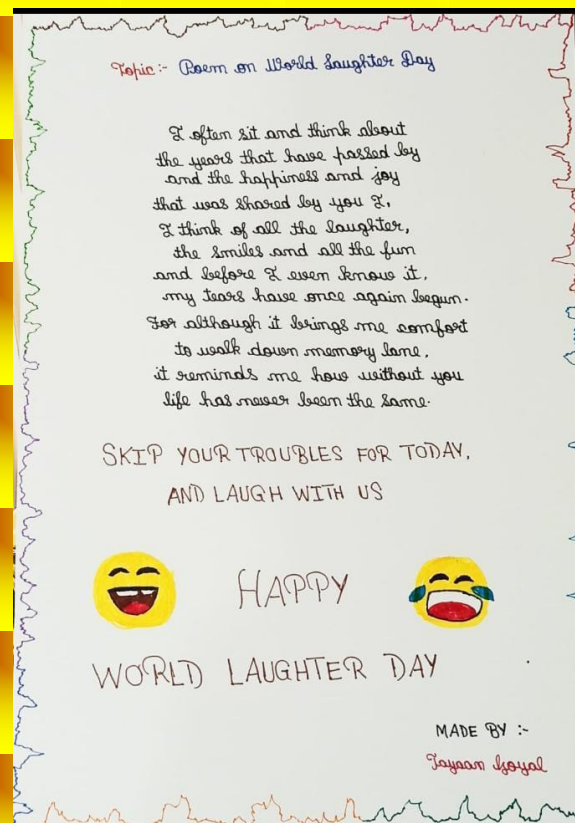 Topic:- Poem on World Laughter Day
I often sit and think about
the years that have passed by
and the happiness and joy
that was shared by you I,
I think of all the laughter,
the smiles and all the fun
and before I even know it,
my tears have once again begun.
For although it brings me comfort
to walk down memory lane,
it reminds me how without you
life has never been the same.
SKIP YOUR TROUBLES FOR TODAY,
AND LAUGH WITH US
HAPPY
WORLD LAUGHTER DAY
MADE BY :-
Tayaan Goyal